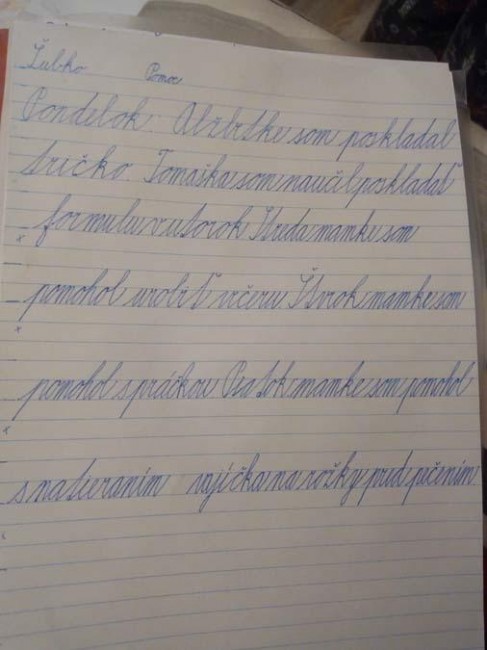 Ľubko Pomoc
Pondelok: Alžbetke som poskladal
tričko. Tomáška som naučil poskladať
formulu v utorok Streda mamke som
pomohol urobiť večeru Štvrok mamke som
pomohol s práčkou Piatok mamke som pomohol
s natieraním vajíčka na rožky pred pečením